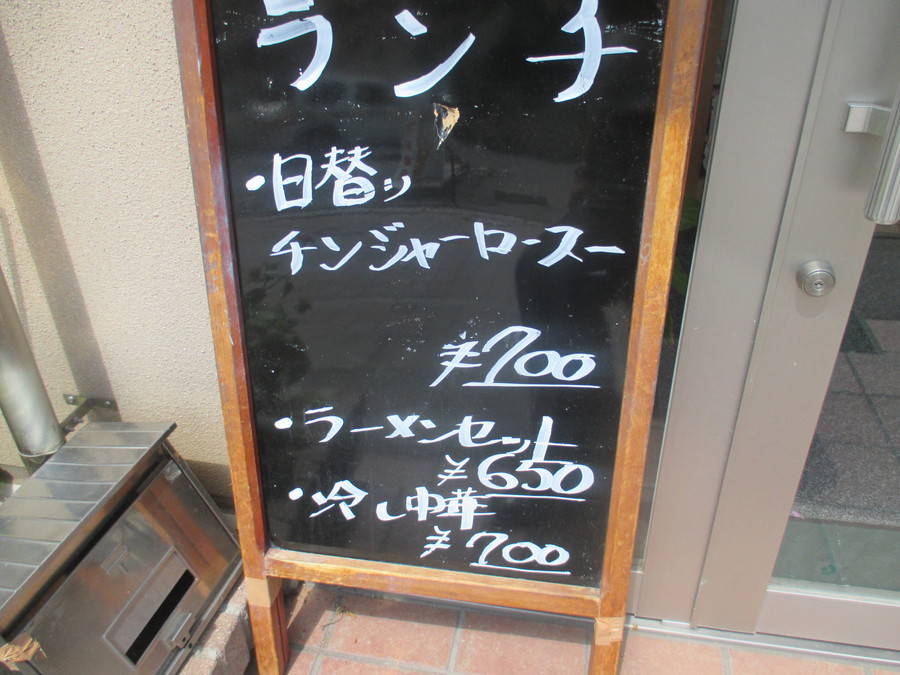 ランチ
・日替り
チンジャーロースー
¥700
・ラーメンセット
¥650
・冷し中華
¥700